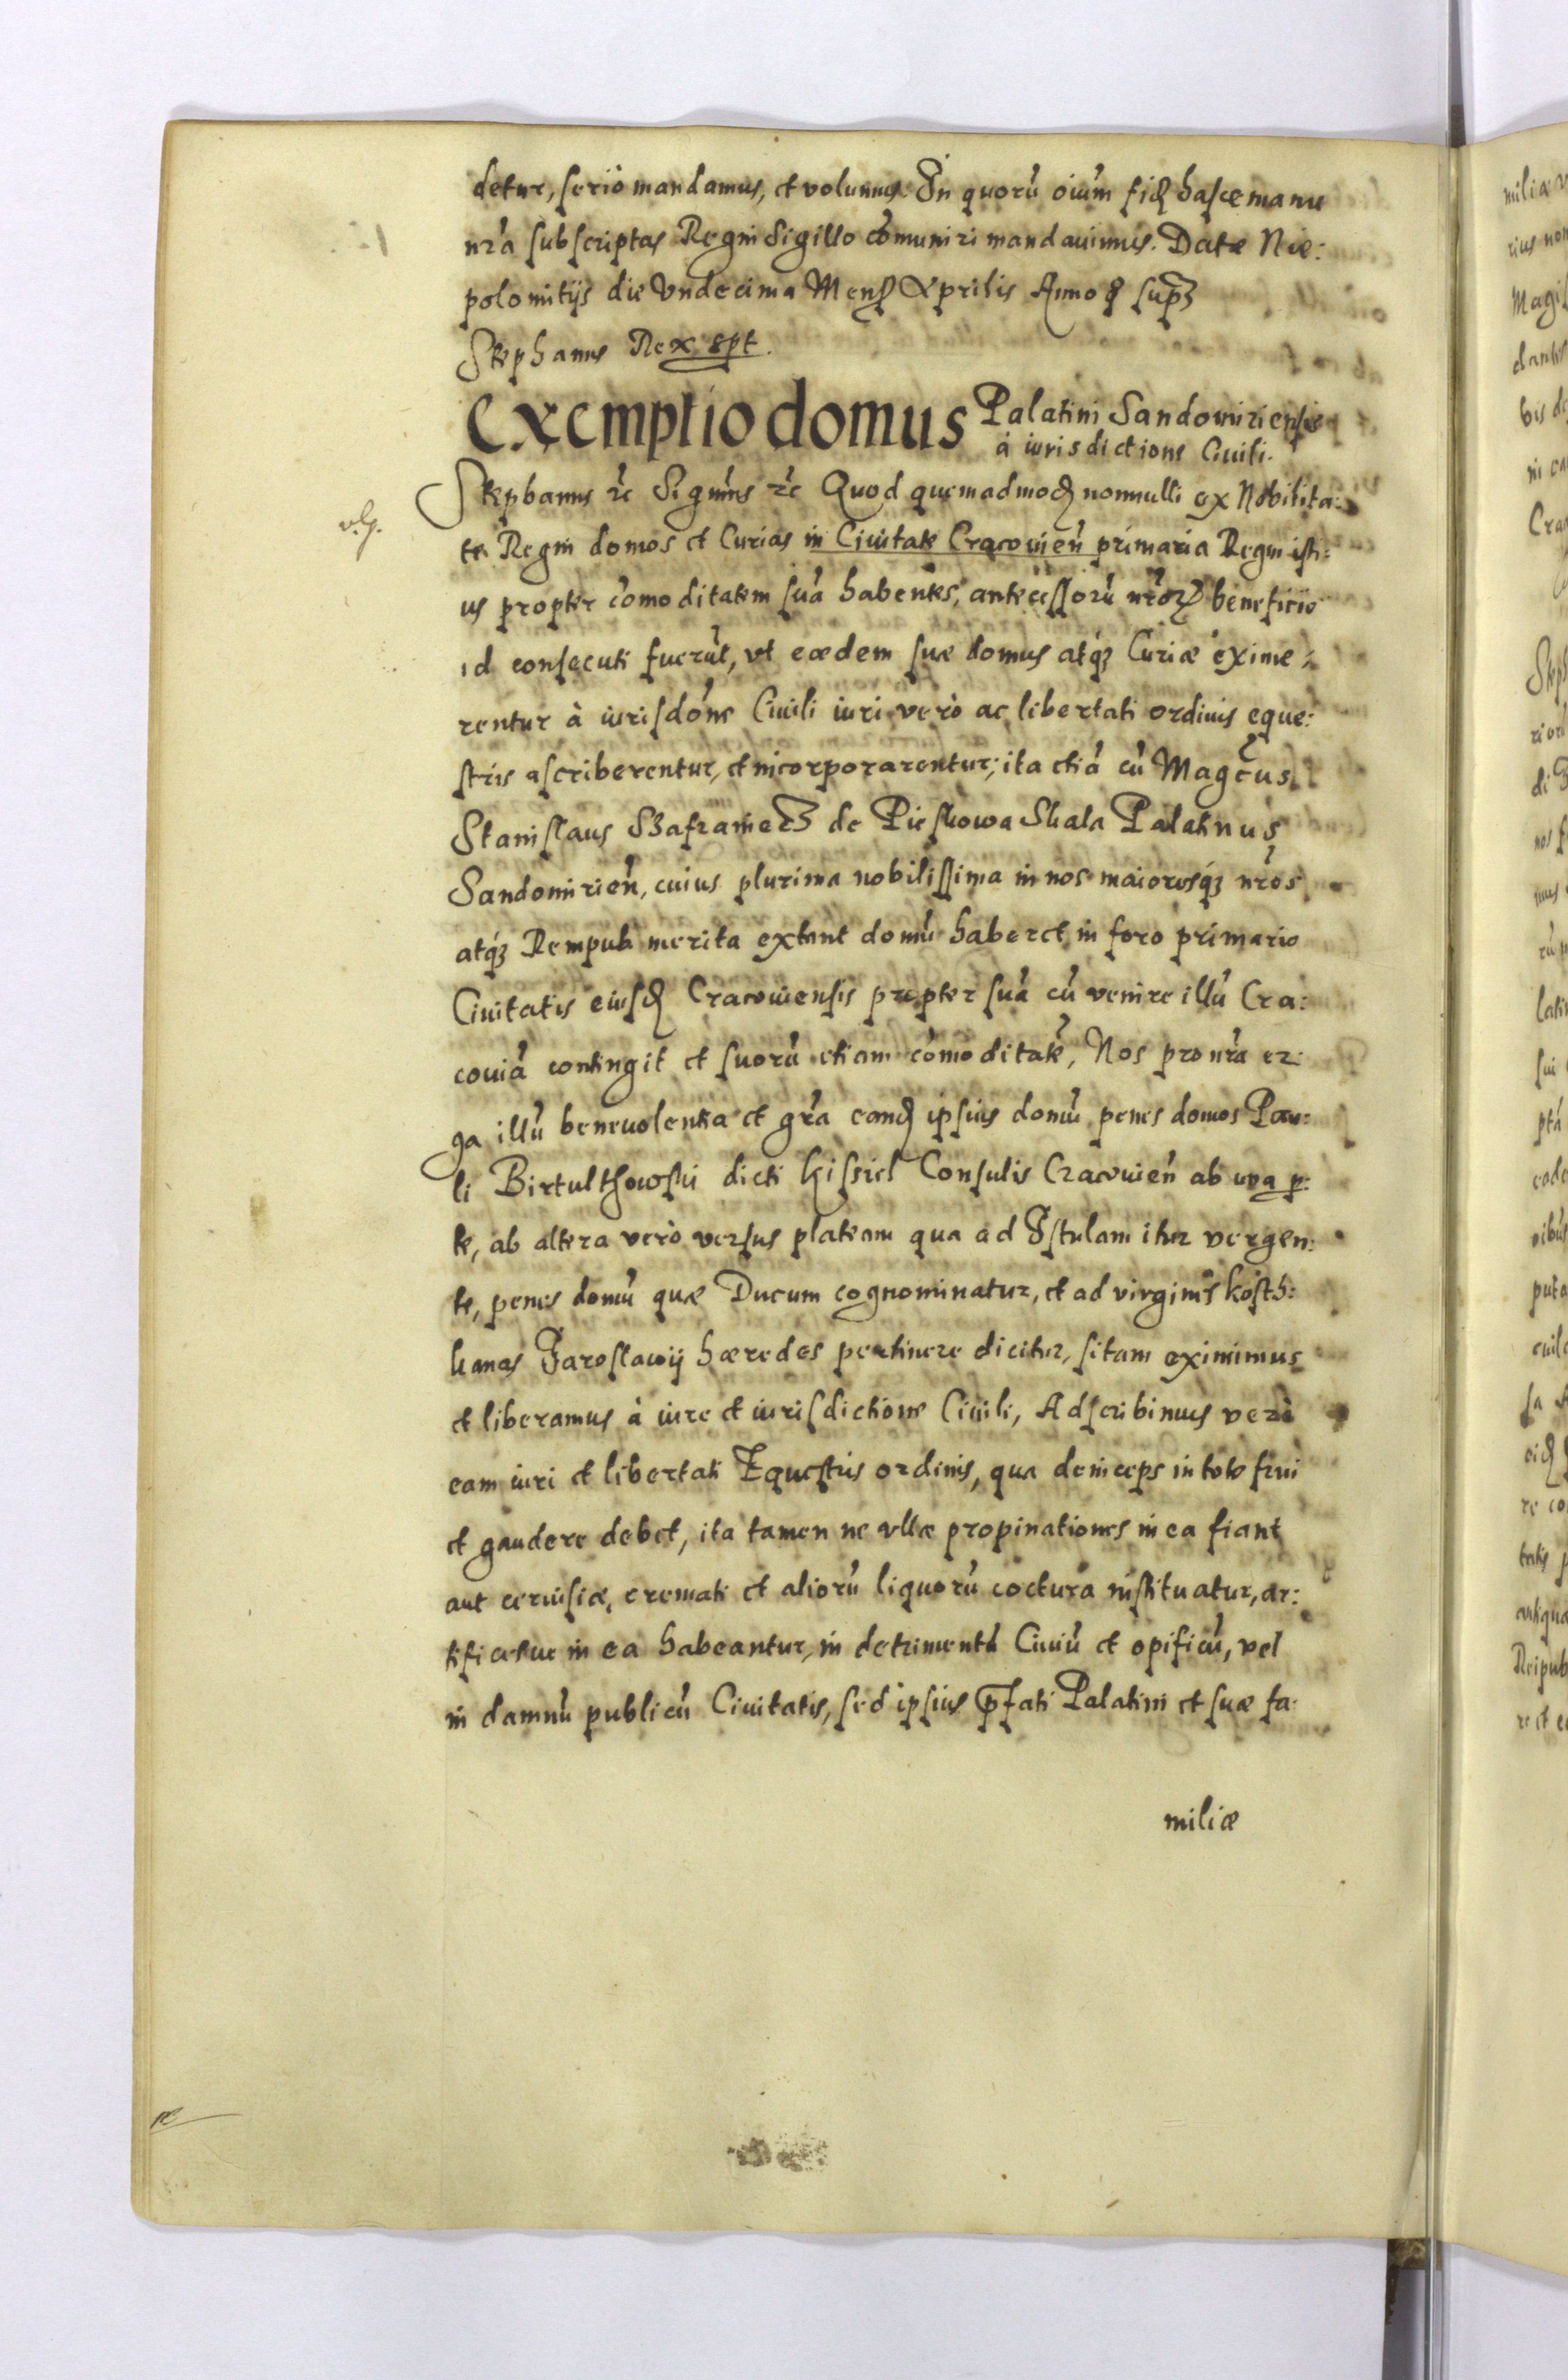 detur, serio mandamus, et volumus. In quorũ oĩum fidẽ hasce manu
nrã subscriptas Regni Sigillo cõmuniri mandauimus. Datæ Nie:
polomitijs die Vndecima Mens̃ Aprilis Anno q̃ sup̃
Stephanus Rex spt.
Exemptio domus Palatini Sandomiriensis
à iurisdictione Ciuili.
Stephanus rc̃ Significamus rc̃ Quod quemadmodũ nonnulli ex Nobilita:
te Regni domos et Curias in Ciuitate Cracouien̄ primaria Regni isti:
us propter cõmoditatem suã habentes, antecessorũ nrõrũ beneficio
id consecuti fuerũt, vt eædem suæ domus atq́ Curiæ exime:
rentur à iurisdõne Ciuili iuri verò ac libertati ordinis eque:
stris ascriberentur, et incorporarentur; ita etiã cũ Magc̃us
Stanislaus Szafraniecz de Pieskowa Skala Palatinus
Sandomirien̄, cuius plurima nobilissima in nos maioresq́ nrõs
atq́ Rempub merita extant domũ haberet in foro primario
Ciuitatis eiusd̃ Cracouiensis propter suã cũ venire illũ Cra:
couiã contingit et suorũ etiam cõmoditatẽ, Nos pro nrã er:
ga illũ beneuolentia et grã eand̃ ipsius domũ penes domos Pau:
li Birtulthowski dicti Kissiel Consulis Cracouien̄ ab una p̱:
te, ab altera verò versus plateam qua ad Istulam itur vergen:
te, penes domũ quæ Ducum cognominatur, et ad virgines Kosth:
kanas Jaroslawij hæredes pertinere dicitur, sitam eximimus
et liberamus à iure et iurisdictione Ciuili, Adscribimus verò
eam iuri et libertati Equestris ordinis, qua deinceps in toto frui
et gaudere debet, ita tamen ne vllæ propinationes in ea fiant
aut ceruisiæ, cremati et aliorũ liquorũ coctura instituatur, ar:
tificesue in ea habeantur, in detrimentũ Ciuiũ et opificũ, vel
in damnũ publicũ Ciuitatis, sed ipsius p̃fati Palatini et suæ fa:
miliæ